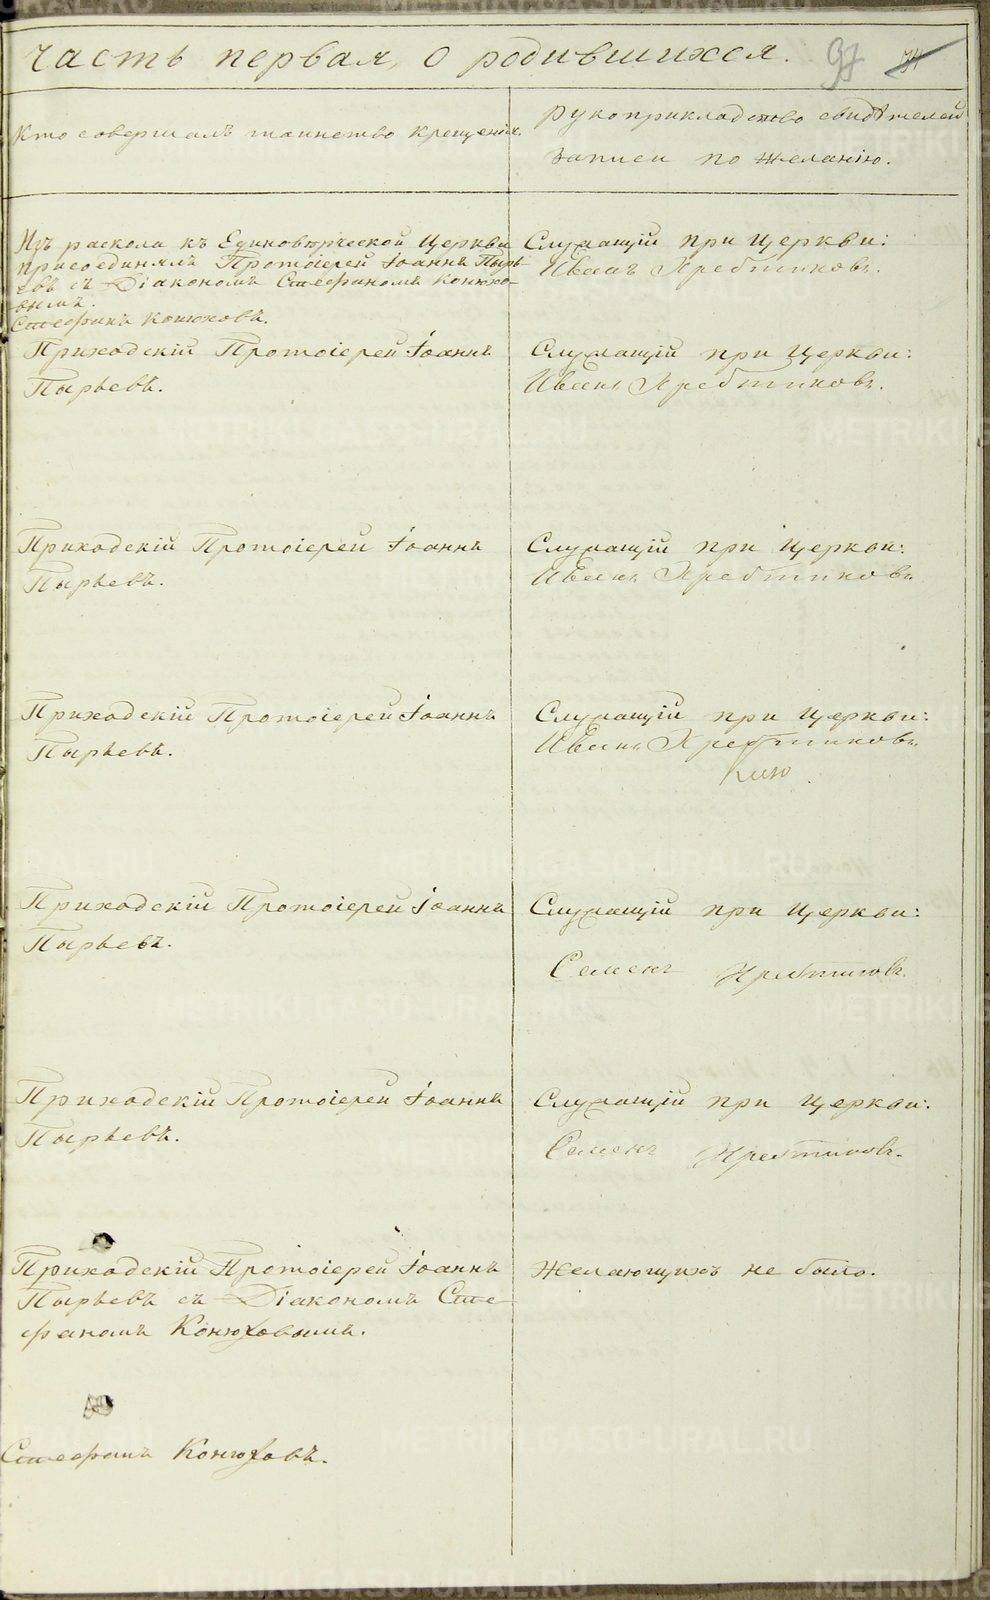 часть первая, о родившихся. 97 74
Кто совершалъ таинство крещенія.
Рукоприкладство свидѣтелей
записи по желанію.
Изъ раскола къ Единовѣрческой Церкви
присоединялъ Протоіерей Іоаннъ Пырь-
евъ съ Діакономъ Стефаномъ Конюхо-
вымъ.
Стефанъ Конюховъ.
Служащій при Церкви:
Иванъ
Приходскій Протоіерей Іоаннъ
Пырьевъ.
Служащій при Церкви:
Иванъ
Приходскій Протоіерей Іоаннъ
Пырьевъ.
Служащій при Церкви:
Иванъ
Приходскій Протоіерей Іоаннъ
Пырьевъ.
Служащій при Церкви:
Иванъ
Приходскій Протоіерей Іоаннъ
Пырьевъ.
Служащій при Церкви:
Семенъ
Приходскій Протоіерей Іоаннъ
Пырьевъ.
Служащій при Церкви:
Семенъ
Приходскій Протоіерей Іоаннъ
Пырьевъ съ Діакономъ Сте-
фаномъ Конюховымъ.
Желающихъ не было.
Стефанъ Конюховъ.
METRIKI.GASO-URAL.RU